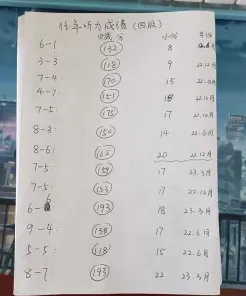 往年听力成绩(四级)
总分 小分 年份
6-1: 132 8 22.6月
3-3: 118 9 22.12月
7-4: 170 15 22.12月
4-7: 151 18 22.12月
7-5: 175 17 22.12月
8-3: 150 14 22.6月
8-6: 165 20 22.12月
7-5: 159 17 23.3月
7-5: 153 17 22.12月
6-6 193 18 23.3月
9-4: 138 17 22.6月
5-5: 118 15 22.6月
8-7 193 22 23.3月